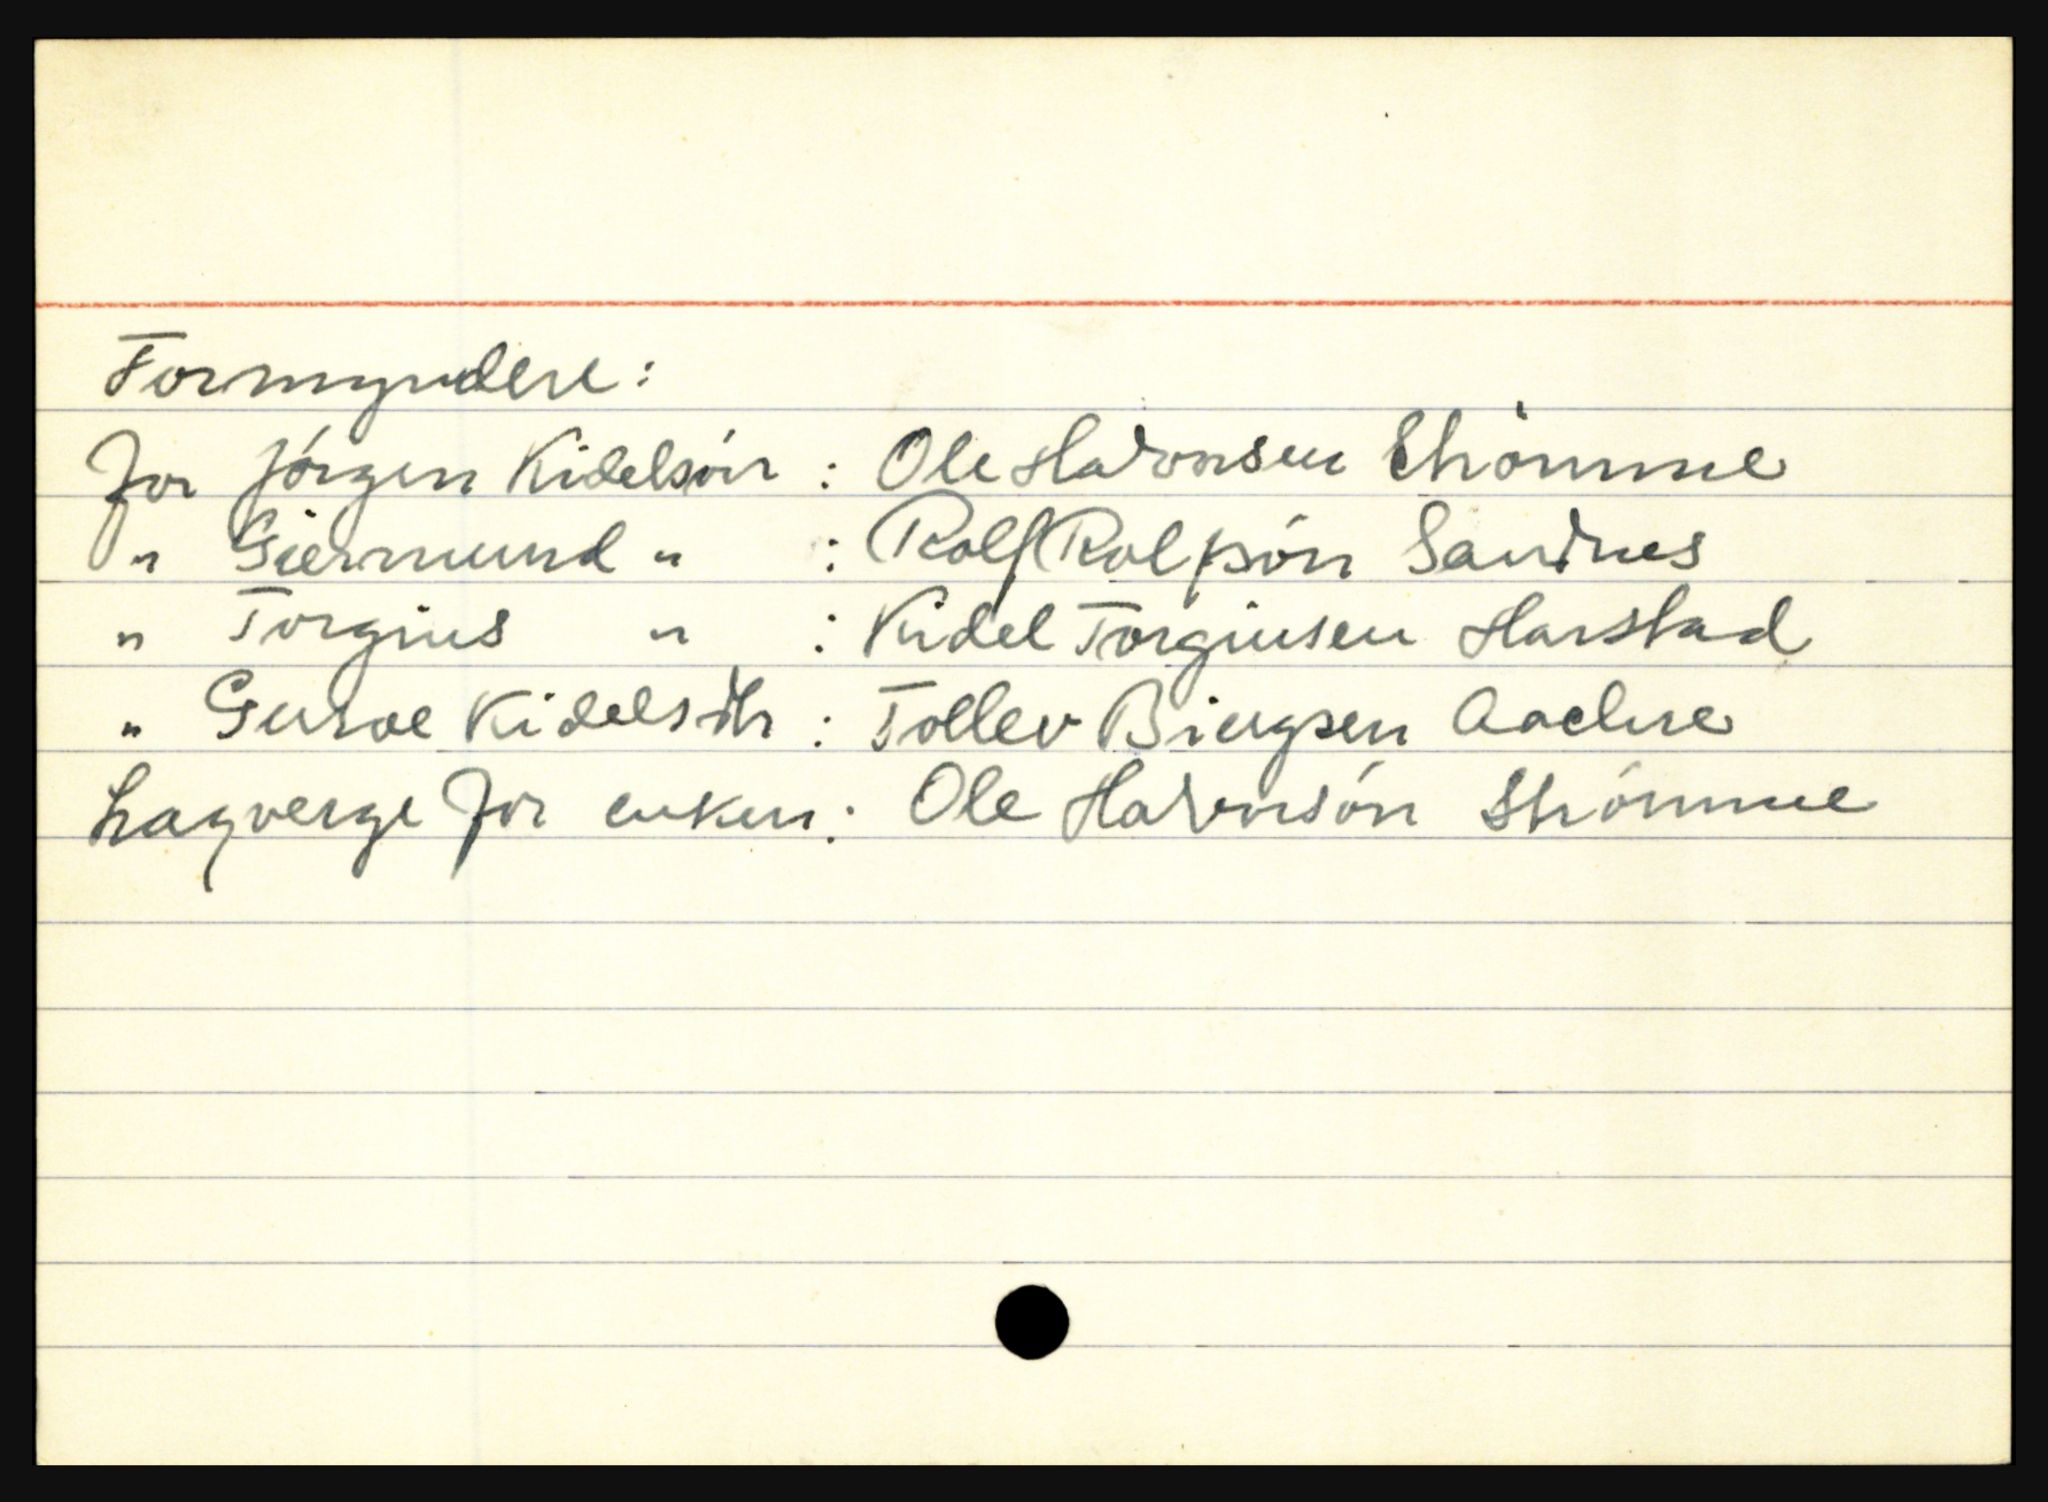 Formyndere:
for Jörgen Kidelsön : Ole Halvorsen Strömme
" Giermund " : Rolf Rolfsön Sandnes
" Torgius " : Kidel Torgiusen Harstad
" Guroe Kidelsdtr : Tollev Biugsen
Lagverge for enken: Ole Halvorsön Strömme